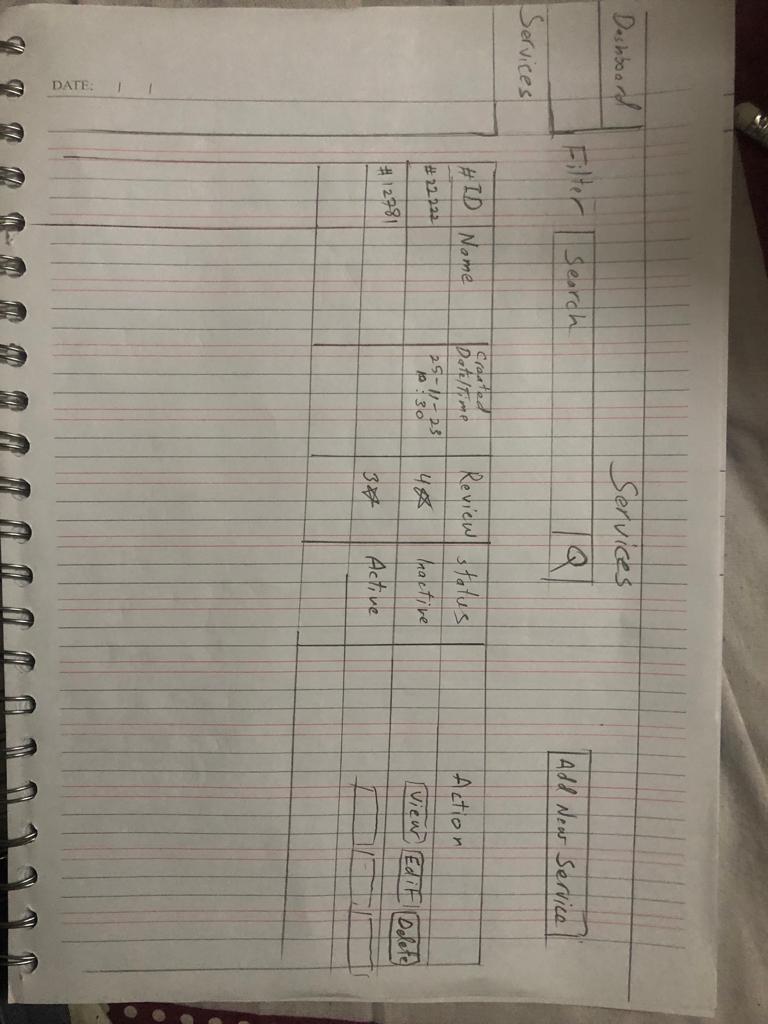 Dashboard
Services
Services
Filter
Search
Add New Service
#ID Name Created Date/Time Review Status Action
#22222 25-11-23 10:30 4☆ Inactive View Edit Delete
#12781 3☆ Active
DATE: / /